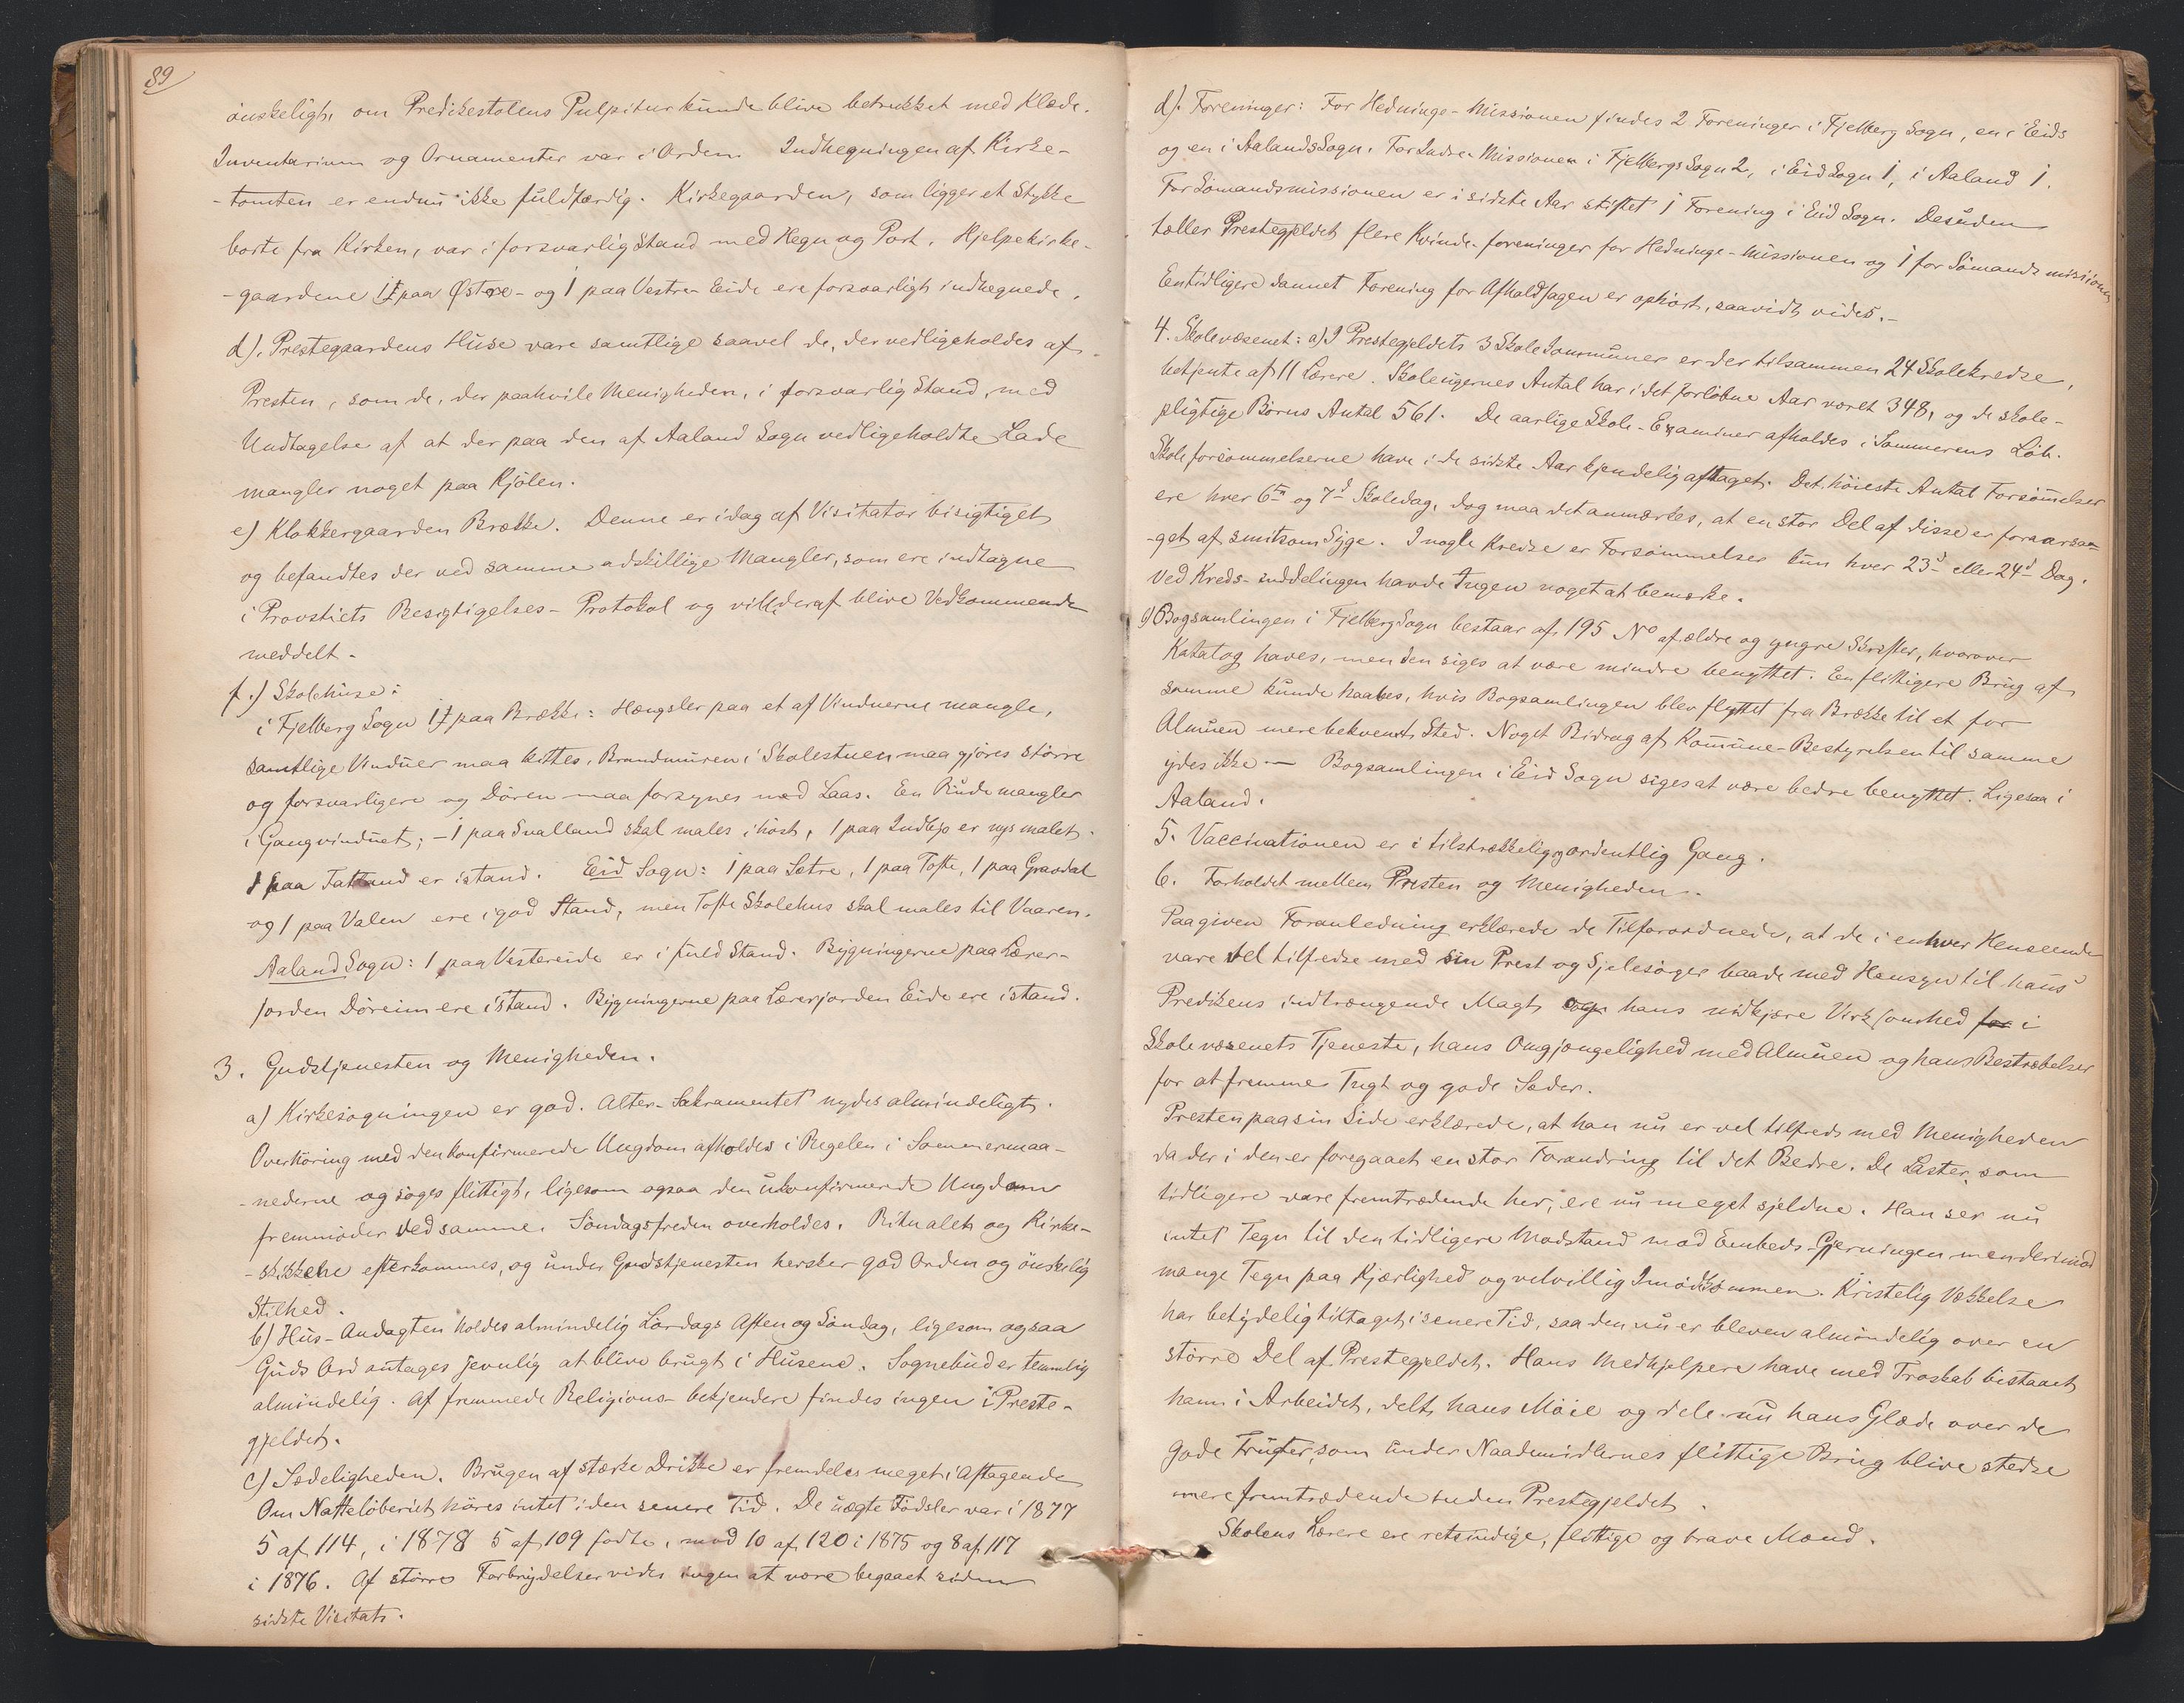 89
ønskeligt, om Predikestolens Pulpitur kunde blive betrukket med Klæde.
Inventarium og Ornamenter var i Orden. Indhegningen af Kirke-
-tomten er endnu ikke fuldfærdig. Kirkegaarden, som ligger et Stykke
borte fra Kirken, var i forsvarlig Stand med Hegn og Port. Hjelpekirke-
-gaardene 1 paa Østre- og 1 paa Vestre-Eide ere forsvarligt indhegnede.
d). Prestegaardens Huse vare samtlige saavel de, der vedligeholdes af
Presten, som de, der paahvile Menigheden, i forsvarlig Stand, med
Undtagelse af at der paa den af Aaland Sogn vedligeholdte Lade
mangler noget paa Kjølen.
e) Klokkergaarden Brække. Denne er idag af Visitator bisigtiget
og befandtes der ved samme adskillige Mangler, som ere indtagne
i Provstiets Besigtigelses-Protokol og vill deraf blive Vedkommende
meddelt.
f.) Skolehuse:
i Fjelberg Sogn 1 paa Brække: Hængsler paa et af Vinduerne mangle,
samtlige Vinduer maa kittes, Brandmuren i Skolestuen maa gjøres større
og forsvarligere og Døren maa forsynes med Laas. En Rude mangler
i Gangvinduet; - 1 paa Svalland skal males i høst, 1 paa er nys malet.
1 paa er istand. Eid Sogn: 1 paa Sætre, 1 paa Tofte, 1 paa Gravdal
og 1 paa Valen ere i god Stand, men Tofte Skolehus skal males til Vaaren.
Aaland Sogn: 1 paa Vestereide er i fuld Stand. Bygningerne paa Lærer-
jorden Døreim ere istand. Bygningerne paa Lærerjorden Eide ere istand.
3. Gudstjenesten og Menigheden.
a) Kirkesøgningen er god. Alter-Sakramentet nydes almindeligt.
Overhøring med den konfirmerede Ungdom afholdes i Regelen i Sommermaa-
-nederne og søges flittigt, ligesom ogsaa den ukonfirmerede Ungdom
fremmøder ved samme. Søndagsfreden overholdes. Ritualet og Kirke-
-skikkene efterkommes, og under Gudstjenesten hersker god Orden og ønskelig
Stilhed.
b) Hus-Andagten holdes almindelig Lørdags Aften og Søndag, ligesom ogsaa
Guds Ord antages jevnlig at blive brugt i Husene. Sognebud er temmlig
almindelig. Af fremmede Religions-bekjendere findes ingen i Preste-
gjeldet.
c) Sædeligheden. Brugen af stærke Drikke er fremdeles meget i Aftagende
Om Natteløberiet høres intet i den senere Tid. De uægte Fødsler var i 1877
5 af 114, i 1878 5 af 109 fødte, mod 10 af 120 i 1875 og 8 af 117
i 1876. Af større Forbrydelser vides ingen at være begaaet siden
sidste Visitats.
d). Foreninger: For Hednings-Missionen findes 2 Foreninger i Fjelberg Sogn, en i Eids
og en i Aalands Sogn. For Indre-Missionen i Fjelbergs Sogn 2, i Eid Sogn 1, i Aaland 1.
For Sømandsmissionen er i sidste Aar stiftet 1 Forening i Eid Sogn. Desuden
tæller Prestegjeldet flere Kvinde-foreninger for Hedninge-Missionen og 1 for Sømandsmissionen
En tidligere dannet Forening for Afholdssagen er ophørt, saavidt vides.-
4. Skolevæsenet: a) I Prestegjeldets 3 Skolekommuner er der tilsammen 24 Skolekredse,
betjente af 11 Lærere. Skoleugernes Antal har i det forløbne Aar været 348, og de skole-
pligtige Børns Antal 561. De aarlige Skole-Examiner afholdes i Sommerens Løb.
Skoleforsømmelserne have i de sidste Aar kjendelig aftaget. Det høieste Antal Forsømmelser
ere hver 6te og 7d Skoledag, dog maa det anmærkes, at en stor Del af disse er foraarsa-
-get af smitsom Syge. I nogle Kredse er Forsømmelser kun hver 23d eller 24d Dag.
Ved Kreds-inddelingen havde Ingen noget at bemærke.
b) Bogsamlingen i Fjelberg Sogn bestaar af 195 No af ældre og yngre Skrifter, hvorover
Katalog haves, men den siges at være mindre benyttet. En flittigere Brug af
samme kunde haabes, hvis Bogsamlingen blev flyttet fra Brække til et for
Almuen mere bekvemt Sted. Noget Bidrag af Kommune-Bestyrelsen til samme
ydes ikke — Bogsamlingen i Eid Sogn siges at være bedre benyttet. Ligesaa i
Aaland.
5. Vaccinationen er i tilstrækkelig og ordentlig Gang.
6. Forholdet mellem Presten og Menigheden.
Paa given Foranledning erklærede de Tilforordnede, at de i enhver Henseende
vare vel tilfredse med sin Prest og Sjelesørger baade med Hensyn til hans
Predikens indtrængende Magt og hans nidkjære Virksomhed for i
Skolevæsenets Tjeneste, hans Omgjængelighed med Almuen og hans Bestræbelser
for at fremme Tugt og gode Sæder.
Presten paa sin Side erklærede, at han nu er vel tilfreds med Menigheden
da der i den er foregaaet en stor Forandring til det Bedre. De Laster, som
tidligere vare fremtrædende her, ere nu meget sjeldne. Han ser nu
intet Tegn til den tidligere Modstand mod Embeds-Gjerningen men derimod
mange Tegn paa Kjærlighed og velvillig Imødekommen. Kristelig Vækkelse
har betydelig tiltaget i senere Tid, saa den nu er bleven almindelig over en
større Del af Prestegjeldet. Hans Medhjelpere have med Troskab bistaaet
ham i Arbeidet, delt hans Møie og dele nu hans Glæde over de
gode Frugter, som under Naademidlernes flittige Brug blive stedse
mere fremtrædende inden Prestegjeldet.
Skolens Lærere ere retsindige, flittige og brave Mænd.